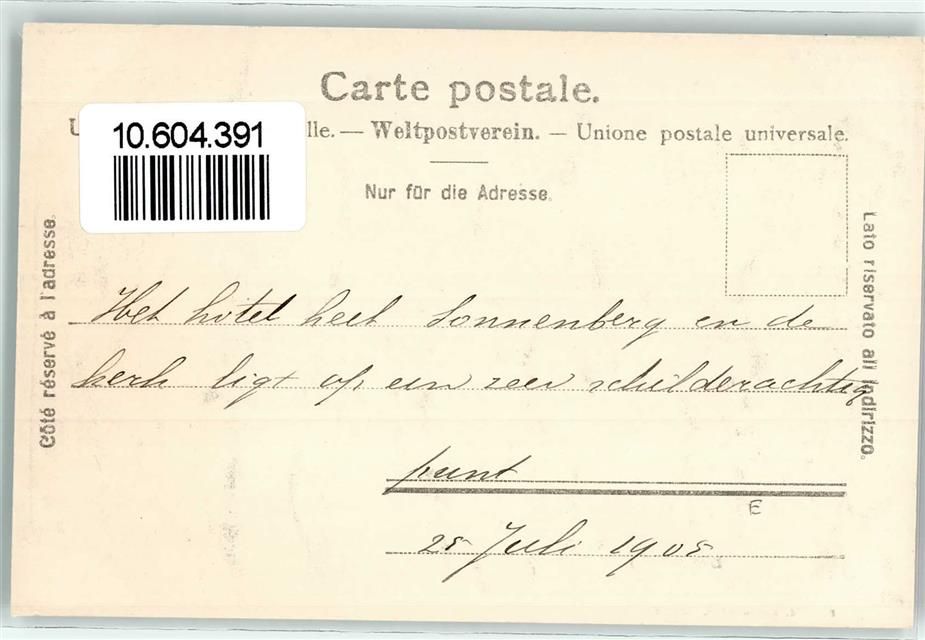 Carte postale.
10.604.391
lle. — Weltpostverein. — Unione postale universale.
Nur für die Adresse.
Côté réservé à l'adresse.
Lato riservato all indirizzo.
Het hotel heet Sonnenberg en de
kerk ligt op een zeer schilderachtig
punt
E
25 Juli 1905